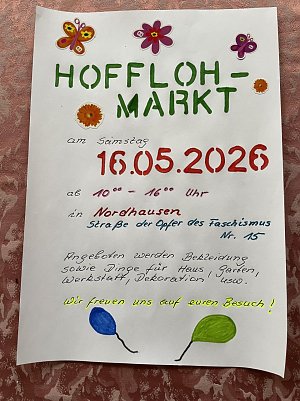 HOFFLOH-
MARKT
am Samstag
16.05.2026
ab 10⁰⁰ - 16⁰⁰ Uhr
in Nordhausen
Straße der Opfer des Faschismus
Nr. 15
Angeboten werden Bekleidung
sowie Dinge für Haus, Garten,
Werkstatt, Dekoration usw.
Wir freuen uns auf euren Besuch!